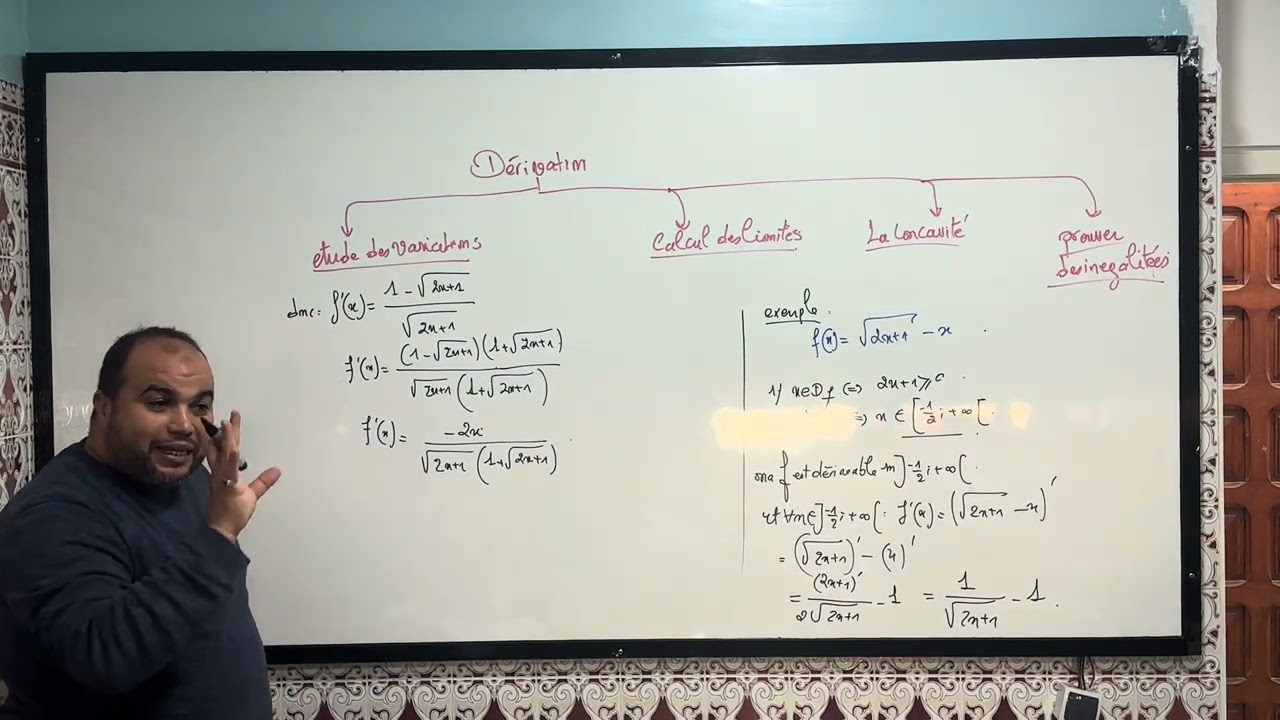 Dérivation
etude des variations
Calcul des limites
La Concavité
prouver
des inegalitées
donc: f'(x) = (1 - √(2x+1)) / √(2x+1)
f'(x) = (1 - √(2x+1))(1 + √(2x+1)) / (√(2x+1) (1 + √(2x+1)))
f'(x) = -2x / (√(2x+1) (1 + √(2x+1)))
exemple.
f(x) = √(2x+1) - x
1/ x∈Df ⇔ 2x+1 ≥ 0
⇒ x ∈ [-1/2; +∞[
on a f est dérivable en ]-1/2; +∞[
et ∀x∈]-1/2; +∞[: f'(x) = (√(2x+1) - x)'
= (√(2x+1))' - (x)'
= (2x+1)' / (2√(2x+1)) - 1 = 1/√(2x+1) - 1.